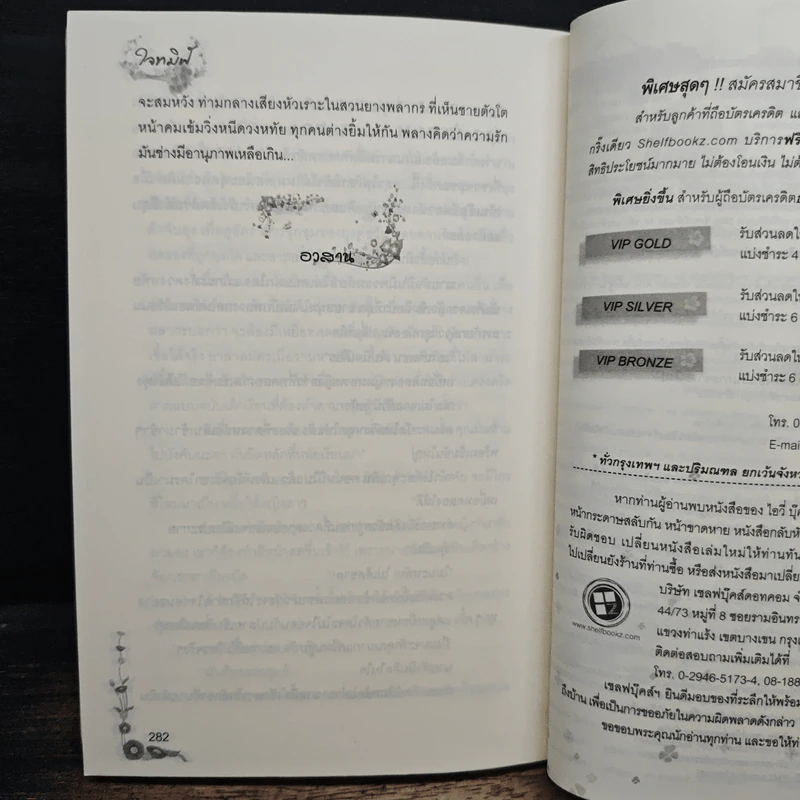 ใจทมิฬ
จะสมหวัง ท่ามกลางเสียงหัวเราะในสวนยางพลากร ที่เห็นชายตัวโต
หน้าคมเข้มวิ่งหนีดวงหทัย ทุกคนต่างยิ้มให้กัน พลางคิดว่าความรัก
มันช่างมีอานุภาพเหลือเกิน...
อวสาน
282
พิเศษสุดๆ !! สมัครสมาชิ
สำหรับลูกค้าที่ถือบัตรเครดิต แ
กริ๊งเดียว Shelfbookz.com บริการฟรี
สิทธิประโยชน์มากมาย ไม่ต้องโอนเงิน ไม่ต้
พิเศษยิ่งขึ้น สำหรับผู้ถือบัตรเครดิต
VIP GOLD
รับส่วนลดใ
แบ่งชำระ 4
VIP SILVER
รับส่วนลดใ
แบ่งชำระ 6
VIP BRONZE
รับส่วนลดใ
แบ่งชำระ 6
โทร. 0
E-mai
* ทั่วกรุงเทพฯ และปริมณฑล ยกเว้นจังหวั
หากท่านผู้อ่านพบหนังสือของ ไอวี่ บุ๊ค
หน้ากระดาษสลับกัน หน้าขาดหาย หนังสือกลับหั
รับผิดชอบ เปลี่ยนหนังสือเล่มใหม่ให้ท่านทัน
ไปเปลี่ยนยังร้านที่ท่านซื้อ หรือส่งหนังสือมาเปลี่ย
บริษัท เชลฟบุ๊คส์ดอทคอม จำ
44/73 หมู่ที่ 8 ซอยรามอินทร
แขวงท่าแร้ง เขตบางเขน กรุงเ
ติดต่อสอบถามเพิ่มเติมได้ที่
โทร. 0-2946-5173-4, 08-188
www.shelfbookz.com
เชลฟบุ๊คส์ฯ ยินดีมอบของที่ระลึกให้พร้อม
ถึงบ้าน เพื่อเป็นการขออภัยในความผิดพลาดดังกล่าว
ขอขอบพระคุณนักอ่านทุกท่าน และขอให้ท่า